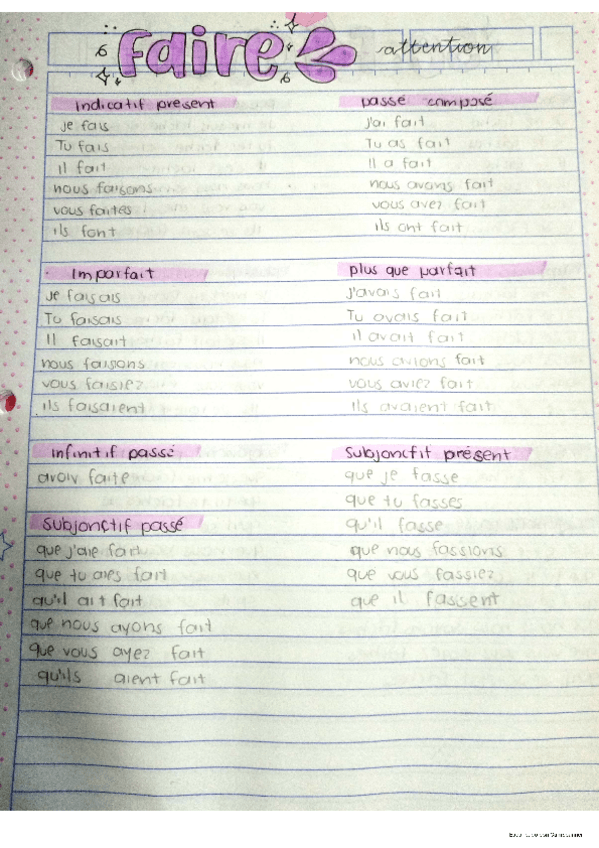 faire attention
indicatif présent
je fais
Tu fais
Il fait
nous faisons
vous faites
ils font
passé composé
j'ai fait
Tu as fait
Il a fait
nous avons fait
vous avez fait
ils ont fait
Imparfait
je faisais
Tu faisais
Il faisait
nous faisons
vous faisiez
ils faisaient
plus que parfait
j'avais fait
Tu avais fait
il avait fait
nous avions fait
vous aviez fait
Ils avaient fait
infinitif passé
avoir faite
Subjonctif passé
que j'aie fait
que tu aies fait
qu'il ait fait
que nous ayons fait
que vous ayez fait
qu'ils aient fait
Subjonctif présent
que je fasse
que tu fasses
qu'il fasse
que nous fassions
que vous fassiez
que il fassent